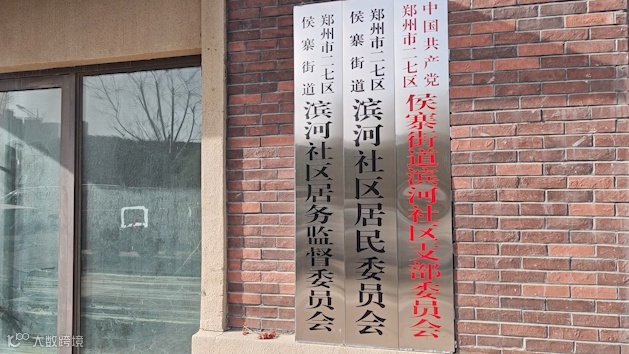 中国共产党
郑州市二七区
侯寨街道滨河社区支部委员会
郑州市二七区
侯寨街道
滨河社区居民委员会
郑州市二七区
侯寨街道
滨河社区居务监督委员会
大数跨境